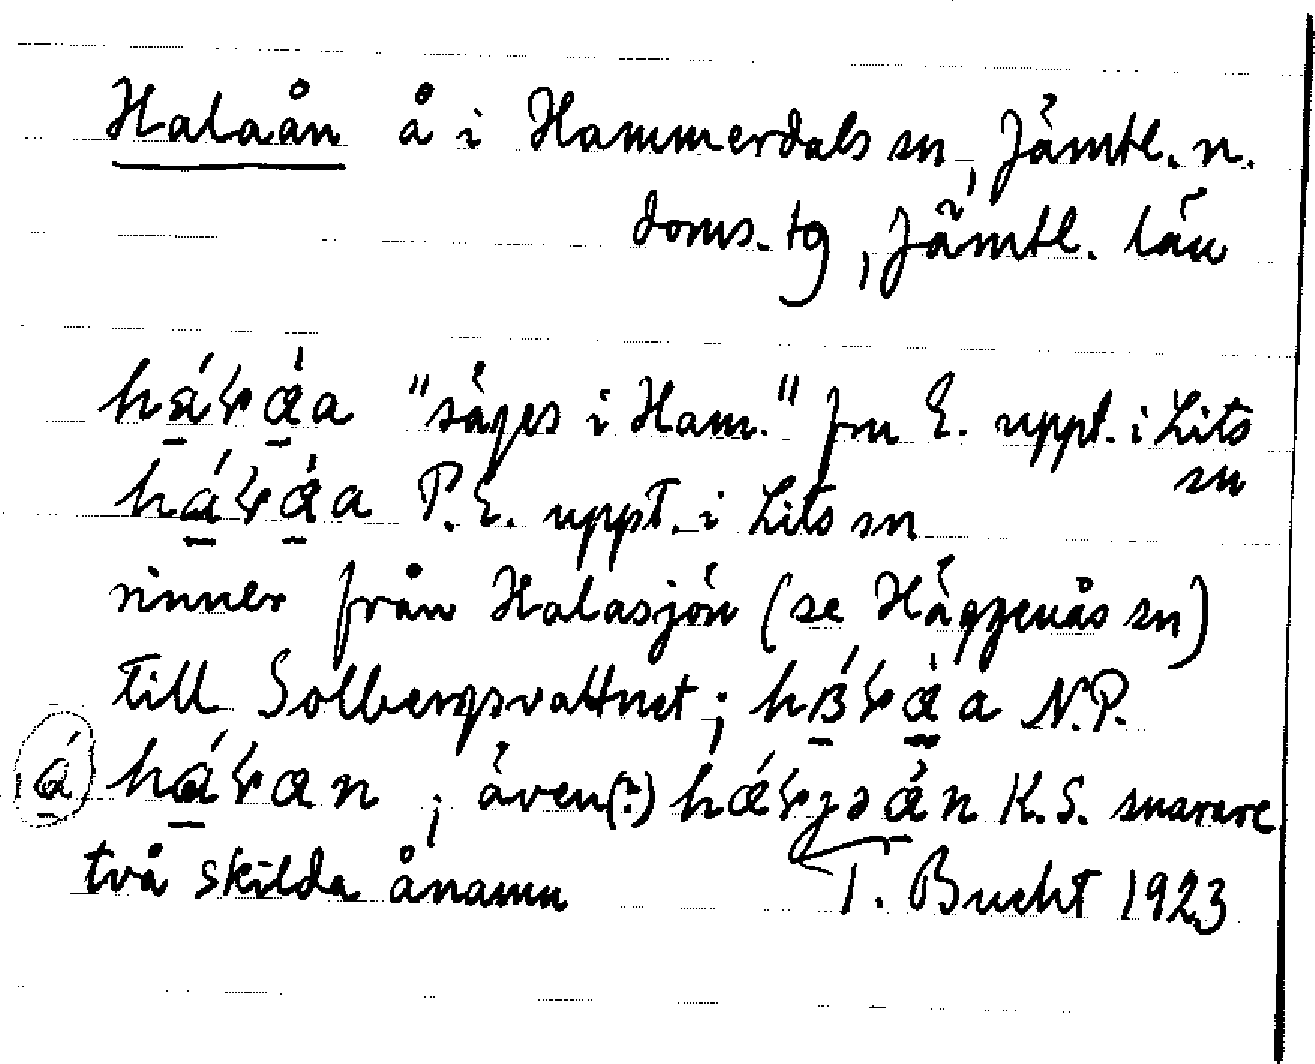 Halaån å i Hammerdals sn, Jämtl. n.
doms. tg, Jämtl. län
"säges i Ham." fru E. uppt. i Lits
sn
P.E. uppt. i Lits sn
rinner från Halasjön (se Häggenås sn)
till Solbergsvattnet; N.P.
; även(?) K.S. snarare
två skilda ånamn T. Bucht 1923